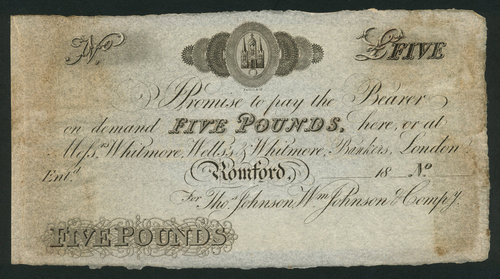 No
£FIVE
I Promise to pay the Bearer
on demand FIVE POUNDS, here, or at
Mefs.rs Whitmore, Wells, & Whitmore, Bankers, London
Ent.d
Romford 18 No
For Tho.s Johnson Wm Johnson & Compy.
FIVE POUNDS